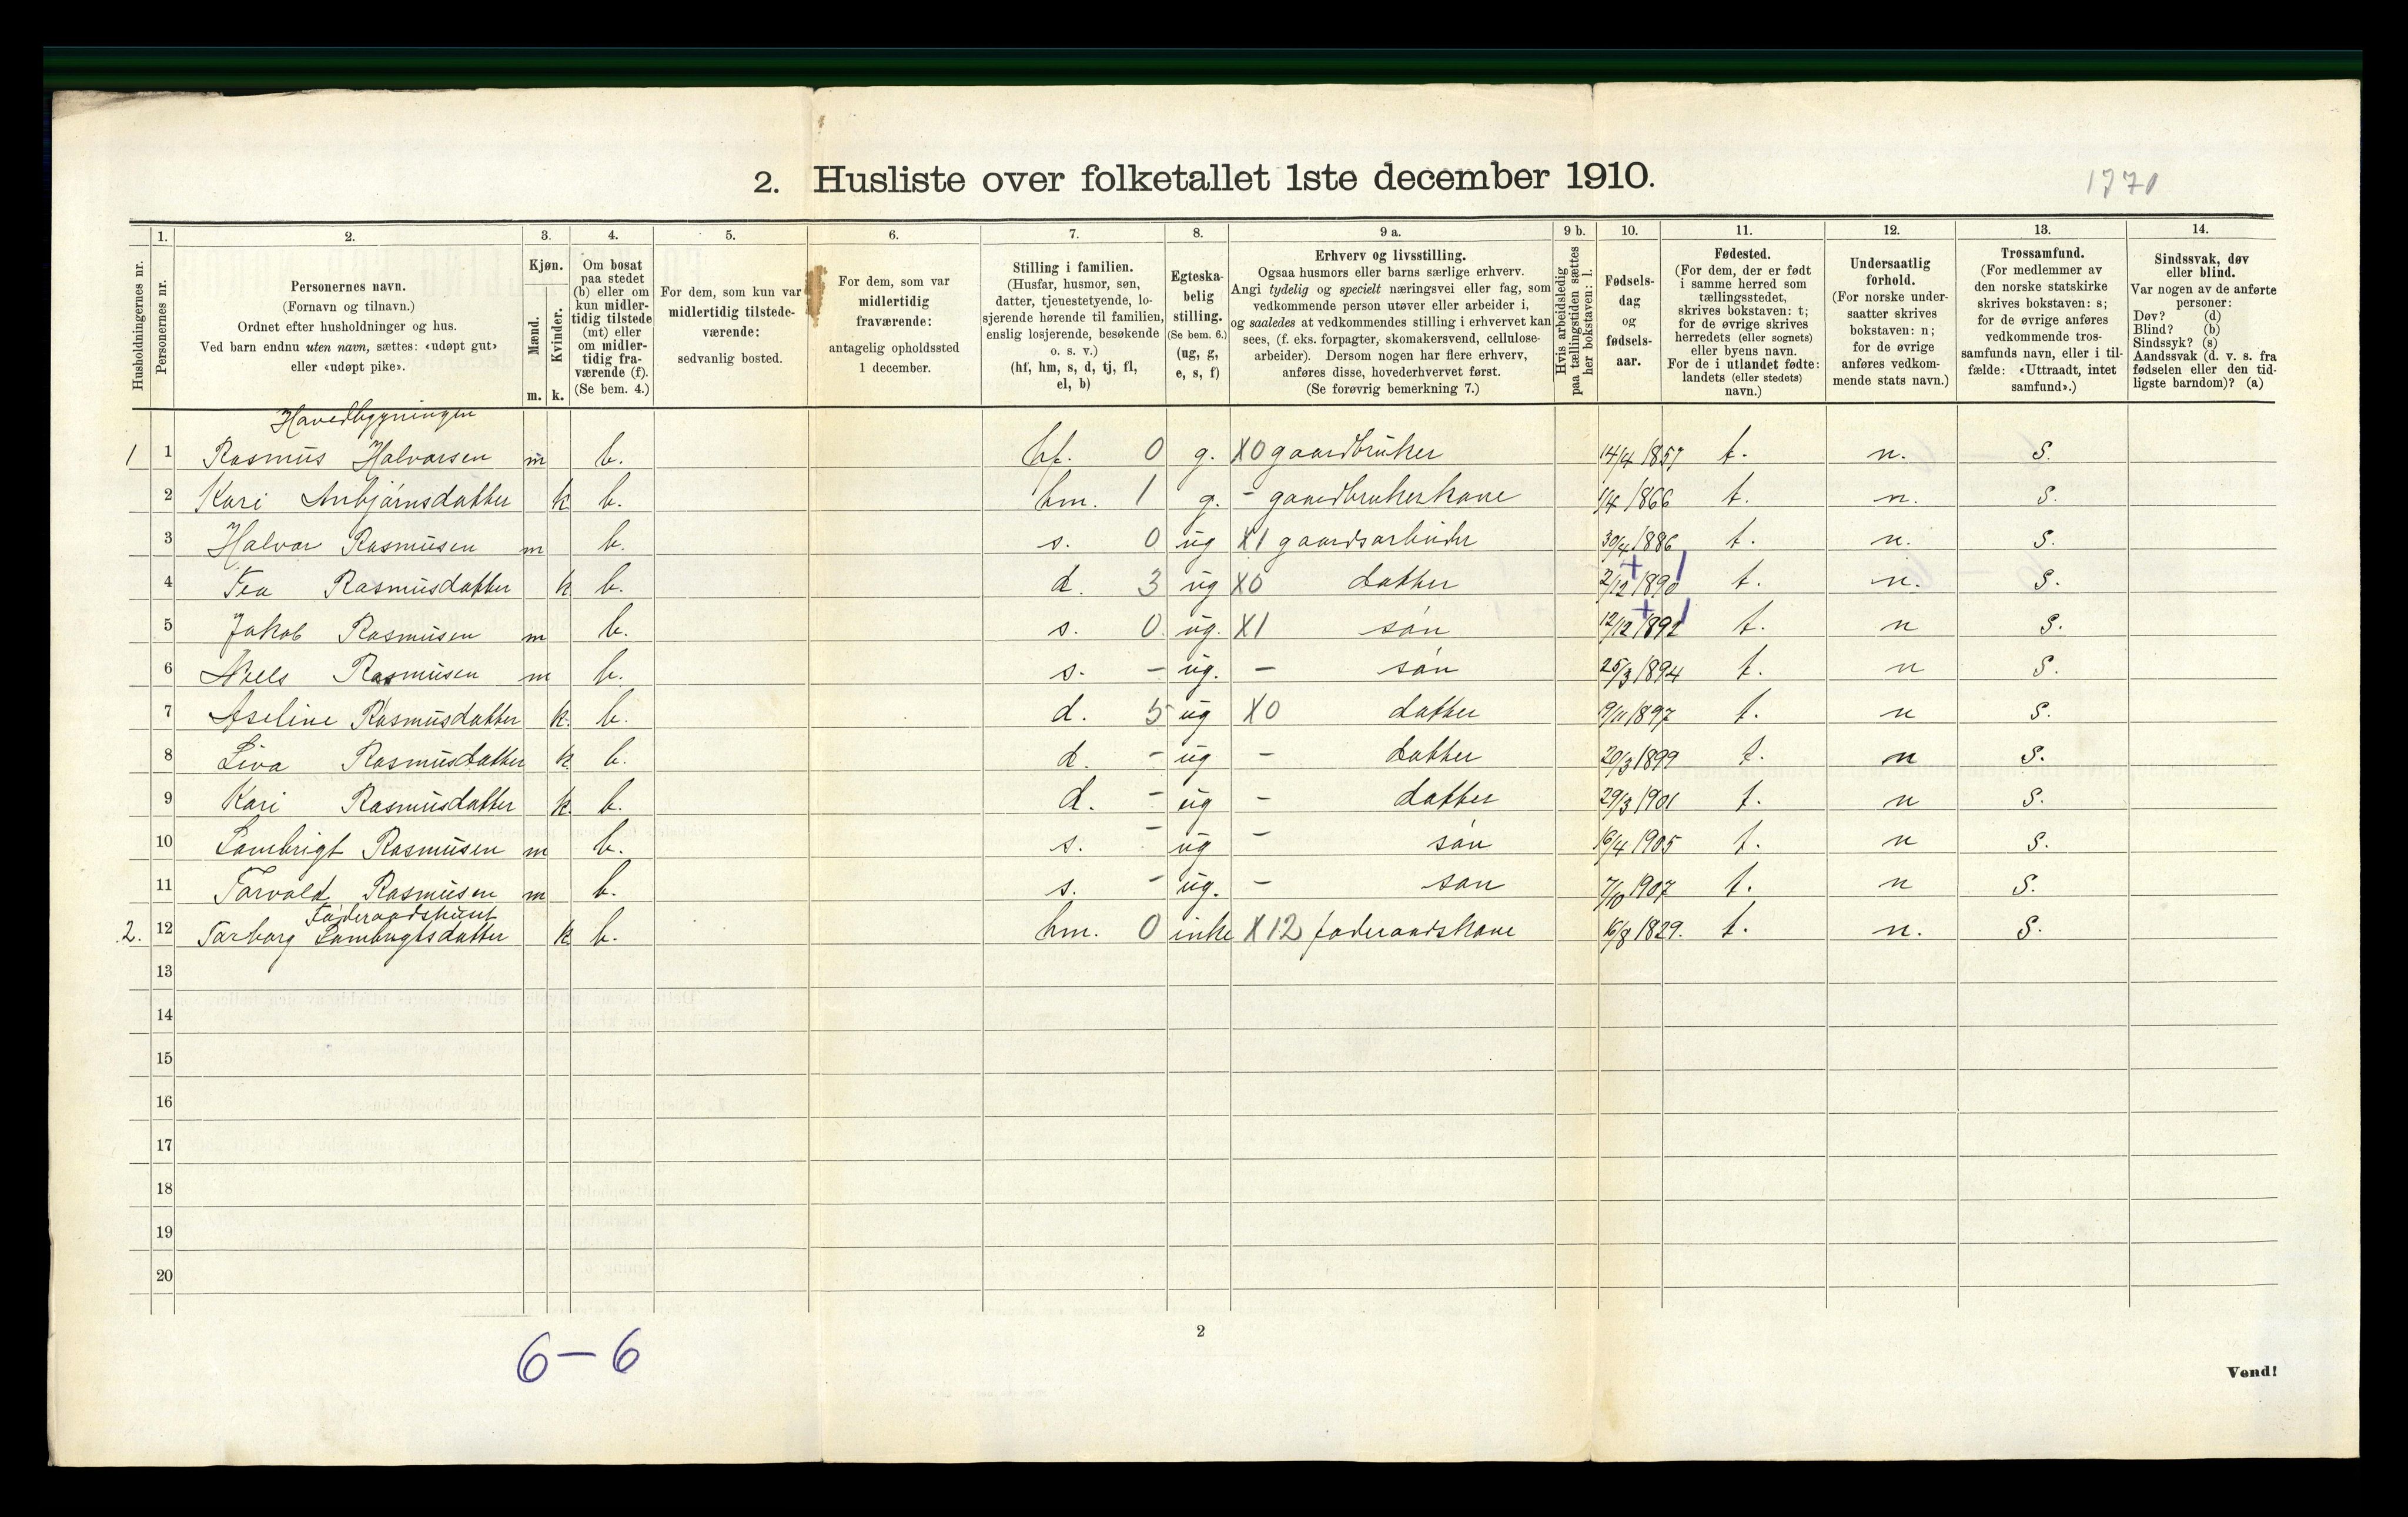 2. Husliste over folketallet 1ste december 1910.
1771
1. 2. 3. 4. 5. 6. 7. 8. 9 a. 9 b. 10. 11. 12. 13. 14.
Husholdningernes nr.
Personernes nr.
Personernes navn.
(Fornavn og tilnavn.)
Ordnet efter husholdninger og hus.
Ved barn endnu uten navn, sættes: «udøpt gut»
eller «udøpt pike».
Kjøn.
Mænd.
Kvinder.
m. k.
Om bosat
paa stedet
(b) eller om
kun midler-
tidig tilstede
(mt) eller
om midler-
tidig fra-
værende (f).
(Se bem. 4.)
For dem, som kun var
midlertidig tilstede-
værende:
sedvanlig bosted.
For dem, som var
midlertidig
fraværende:
antagelig opholdssted
1 december.
Stilling i familien.
(Husfar, husmor, søn,
datter, tjenestetyende, lo-
sjerende hørende til familien,
enslig losjerende, besøkende
o. s. v.)
(hf, hm, s, d, tj, fl,
el, b)
Egteska-
belig
stilling.
(Se bem. 6.)
(ug, g,
e, s, f)
Erhverv og livsstilling.
Ogsaa husmors eller barns særlige erhverv.
Angi tydelig og specielt næringsvei eller fag, som
vedkommende person utøver eller arbeider i,
og saaledes at vedkommendes stilling i erhvervet kan
sees, (f. eks. forpagter, skomakersvend, cellulose-
arbeider). Dersom nogen har flere erhverv,
anføres disse, hovederhvervet først.
(Se forøvrig bemerkning 7.)
Hvis arbeidsledig
paa tællingstiden sættes
her bokstaven: l.
Fødsels-
dag
og
fødsels-
aar.
Fødested.
(For dem, der er født
i samme herred som
tællingsstedet,
skrives bokstaven: t;
for de øvrige skrives
herredets (eller sognets)
eller byens navn.
For de i utlandet fødte:
landets (eller stedets)
navn.)
Undersaatlig
forhold.
(For norske under-
saatter skrives
bokstaven: n;
for de øvrige
anføres vedkom-
mende stats navn.)
Trossamfund.
(For medlemmer av
den norske statskirke
skrives bokstaven: s;
for de øvrige anføres
vedkommende tros-
samfunds navn, eller i til-
fælde: «Uttraadt, intet
samfund».)
Sindssvak, døv
eller blind.
Var nogen av de anførte
personer:
Døv? (d)
Blind? (b)
Sindssyk? (s)
Aandssvak (d. v. s. fra
fødselen eller den tid-
ligste barndom)? (a)
Havedbygningen
1 1 Rasmus Halvorsen m b. hf. 0 g. X0 gaardbruker 14/4 1857 t. n. S.
2 Kari Anbjørnsdatter k b. hm. 1 g. - gaardbrukerkone 1/4 1866 t. n. S.
3 Halvor Rasmusen m b. s. 0 ug X1 gaardsarbeider 30/4 1886 t. n. S.
4 Tea Rasmusdatter k b. d. 3 ug X0 datter 2/12 1890 t. n. S.
5 Jakob Rasmusen m b. s. 0 ug. X1 søn 12/12 1892 t. n S.
6 Niels Rasmusen m b. s. - ug. - søn 25/3 1894 t. n S.
7 Aseline Rasmusdatter k. b. d. 5 ug X0 datter 9/11 1897 t. n S.
8 Liva Rasmusdatter k b. d. - ug - datter 20/3 1899 t. n S.
9 Kari Rasmusdatter k. b. d. - ug - datter 29/3 1901 t. n S.
10 Lambrigt Rasmusen m b. s. - ug - søn 16/4 1905 t. n S.
11 Torvald Rasmusen m b. s. - ug. - søn 7/10 1907 t. n S.
Føderaadshuset
2. 12 Torborg Lambrigtsdatter k b. hm. 0 inke X12 føderaadskone 16/8 1829. t. n. S.
13
14
15
16
17
18
19
20
6-6
2
Vend!